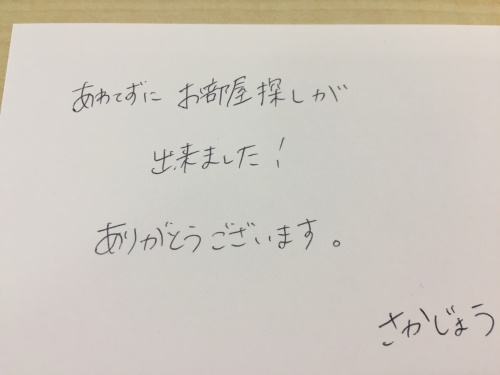 あわてずに お部屋探しが
出来ました！
ありがとうございます。
さかじょう